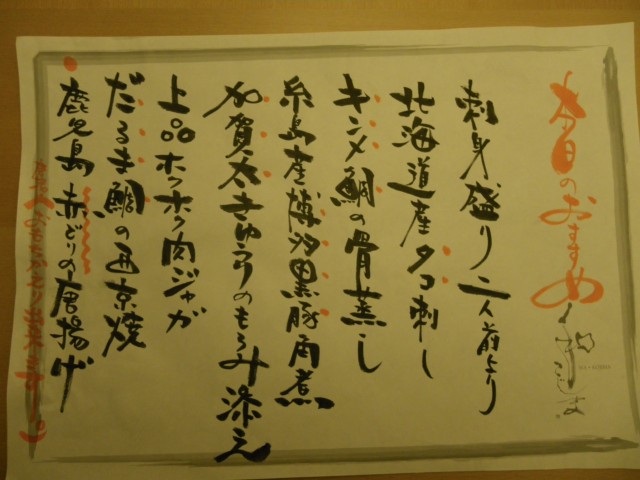 本日のおすすめ
刺身盛り二人前より
北海道産タコ刺し
キンメ鯛の骨蒸し
糸島産博多黒豚角煮
加賀太きゅうりのもろみ添え
上品ホクホク肉ジャガ
だるま鯛の西京焼
鹿児島赤どりの唐揚げ